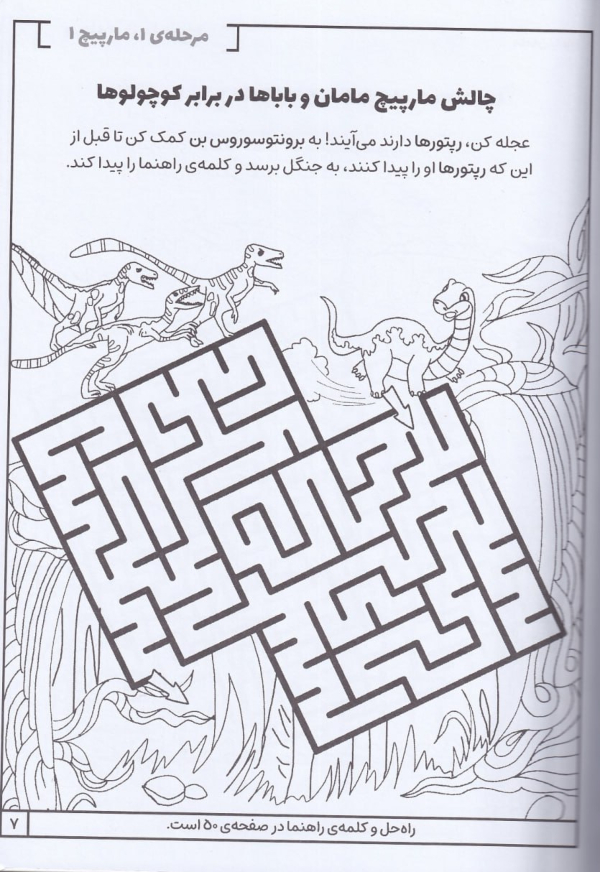 مرحله‌ی ۱، مارپیچ ۱
چالش مارپیچ مامان و باباها در برابر کوچولوها
عجله کن، رپتورها دارند می‌آیند! به برونتوسوروس بن کمک کن تا قبل از
این که رپتورها او را پیدا کنند، به جنگل برسد و کلمه‌ی راهنما را پیدا کند.
راه‌حل و کلمه‌ی راهنما در صفحه‌ی ۵۰ است.
۷